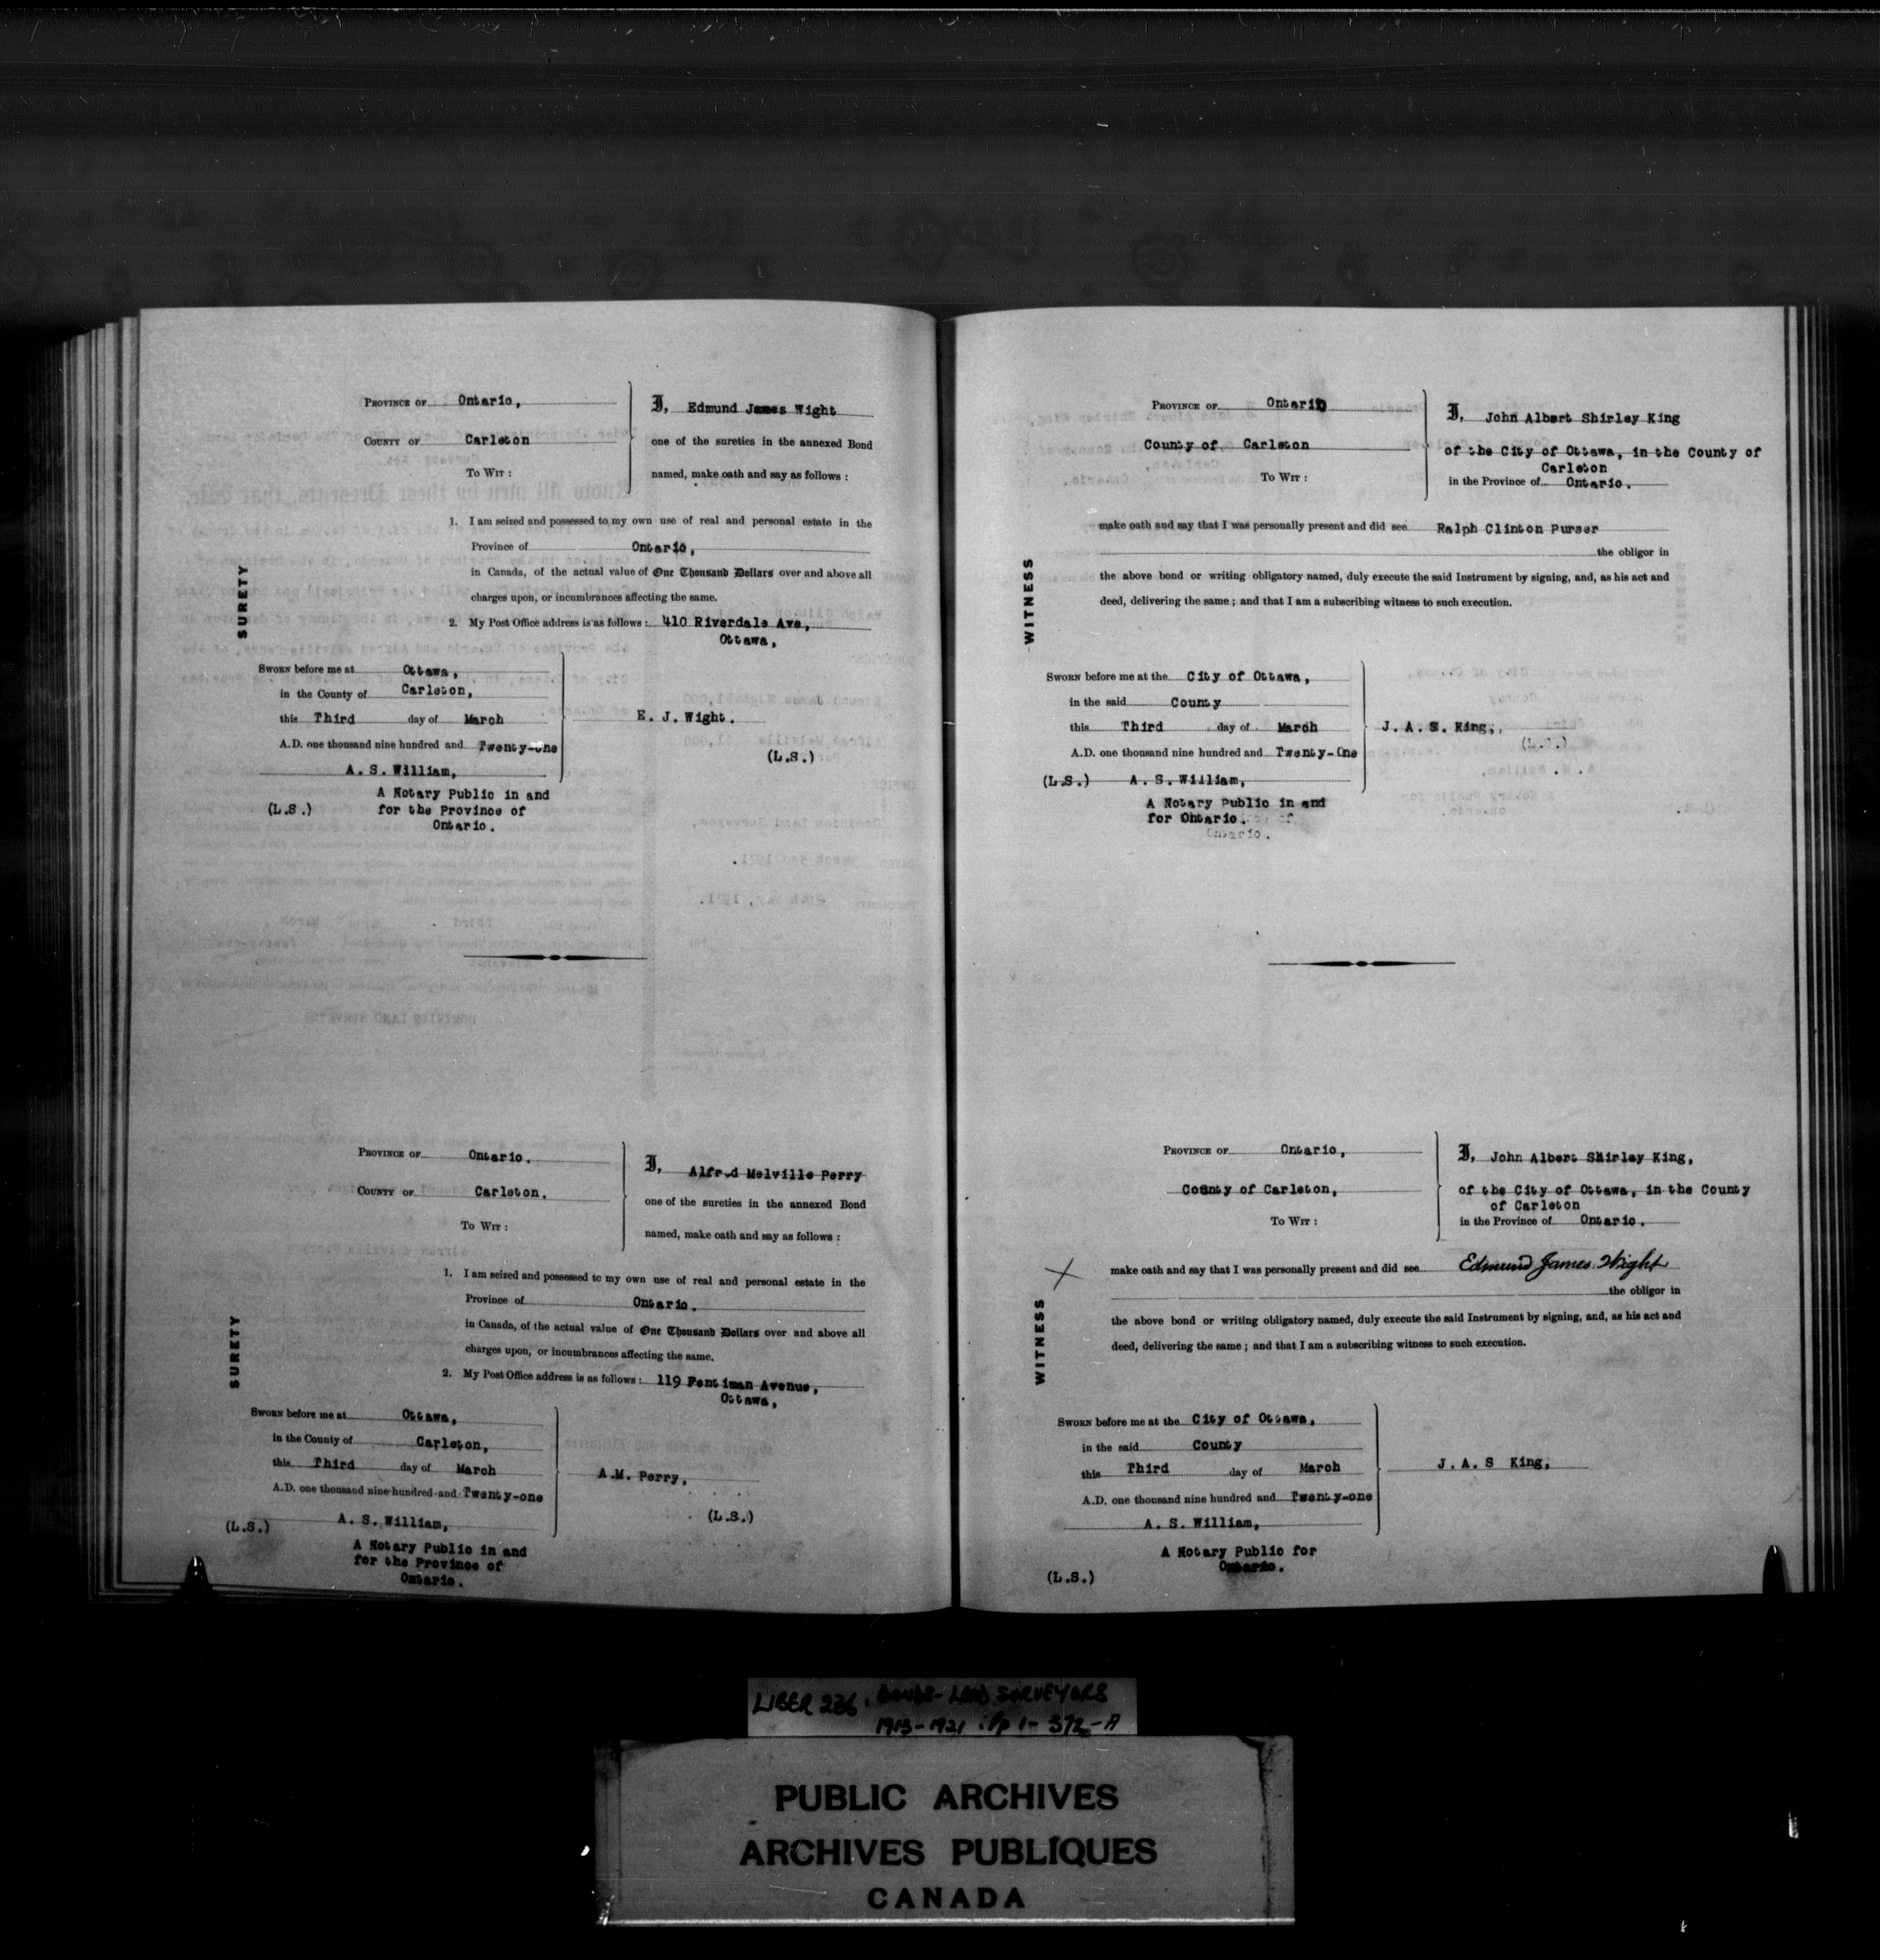 PROVINCE OF Ontario,
COUNTY OF Carleton
TO WIT :
I, Edmund James Wight
one of the sureties in the annexed Bond
named, make oath and say as follows :
1. I am seized and possessed to my own use of real and personal estate in the
Province of Ontario,
in Canada, of the actual value of One Thousand Dollars over and above all
charges upon, or incumbrances affecting the same.
2. My Post Office address is as follows : 410 Riverdale Ave,
Ottawa,
SURETY
SWORN before me at Ottawa,
in the County of Carleton,
this Third day of March
A.D. one thousand nine hundred and Twenty-one
A. S. William,
A Notary Public in and
(L.S.) for the Province of
Ontario.
E. J. Wight.
(L.S.)
PROVINCE OF Ontario.
COUNTY OF Carleton.
TO WIT :
I, Alfred Melville Perry
one of the sureties in the annexed Bond
named, make oath and say as follows :
1. I am seized and possessed to my own use of real and personal estate in the
Province of Ontario.
in Canada, of the actual value of One Thousand Dollars over and above all
charges upon, or incumbrances affecting the same.
2. My Post Office address is as follows : 119 Fentiman Avenue,
Ottawa,
SURETY
SWORN before me at Ottawa,
in the County of Carleton,
this Third day of March
A.D. one thousand nine hundred and Twenty-one
(L.S.) A. S. William,
A Notary Public in and
for the Province of
Ontario.
A.M. Perry,
(L.S.)
PROVINCE OF Ontario
County of Carleton
TO WIT :
I, John Albert Shirley King
of the City of Ottawa, in the County of
Carleton
in the Province of Ontario.
make oath and say that I was personally present and did see Ralph Clinton Purser
the obligor in
the above bond or writing obligatory named, duly execute the said Instrument by signing, and, as his act and
deed, delivering the same ; and that I am a subscribing witness to such execution.
WITNESS
SWORN before me at the City of Ottawa,
in the said County
this Third day of March
A.D. one thousand nine hundred and Twenty-One
(L.S.) A. S. William,
A Notary Public in and
for Ontario.
Ontario.
J. A. S. King,
(L.S.)
PROVINCE OF Ontario,
County of Carleton,
TO WIT :
I, John Albert Shirley King,
of the City of Ottawa, in the County
of Carleton
in the Province of Ontario.
make oath and say that I was personally present and did see Edmund James Wight
the obligor in
the above bond or writing obligatory named, duly execute the said Instrument by signing, and, as his act and
deed, delivering the same ; and that I am a subscribing witness to such execution.
WITNESS
SWORN before me at the City of Ottawa,
in the said County
this Third day of March
A.D. one thousand nine hundred and Twenty-one
A. S. William,
A Notary Public for
Ontario.
(L.S.)
J. A. S King,
LIBER 236. BONDS - LAND SURVEYORS
1913-1921 : Pp 1 - 372-A
PUBLIC ARCHIVES
ARCHIVES PUBLIQUES
CANADA